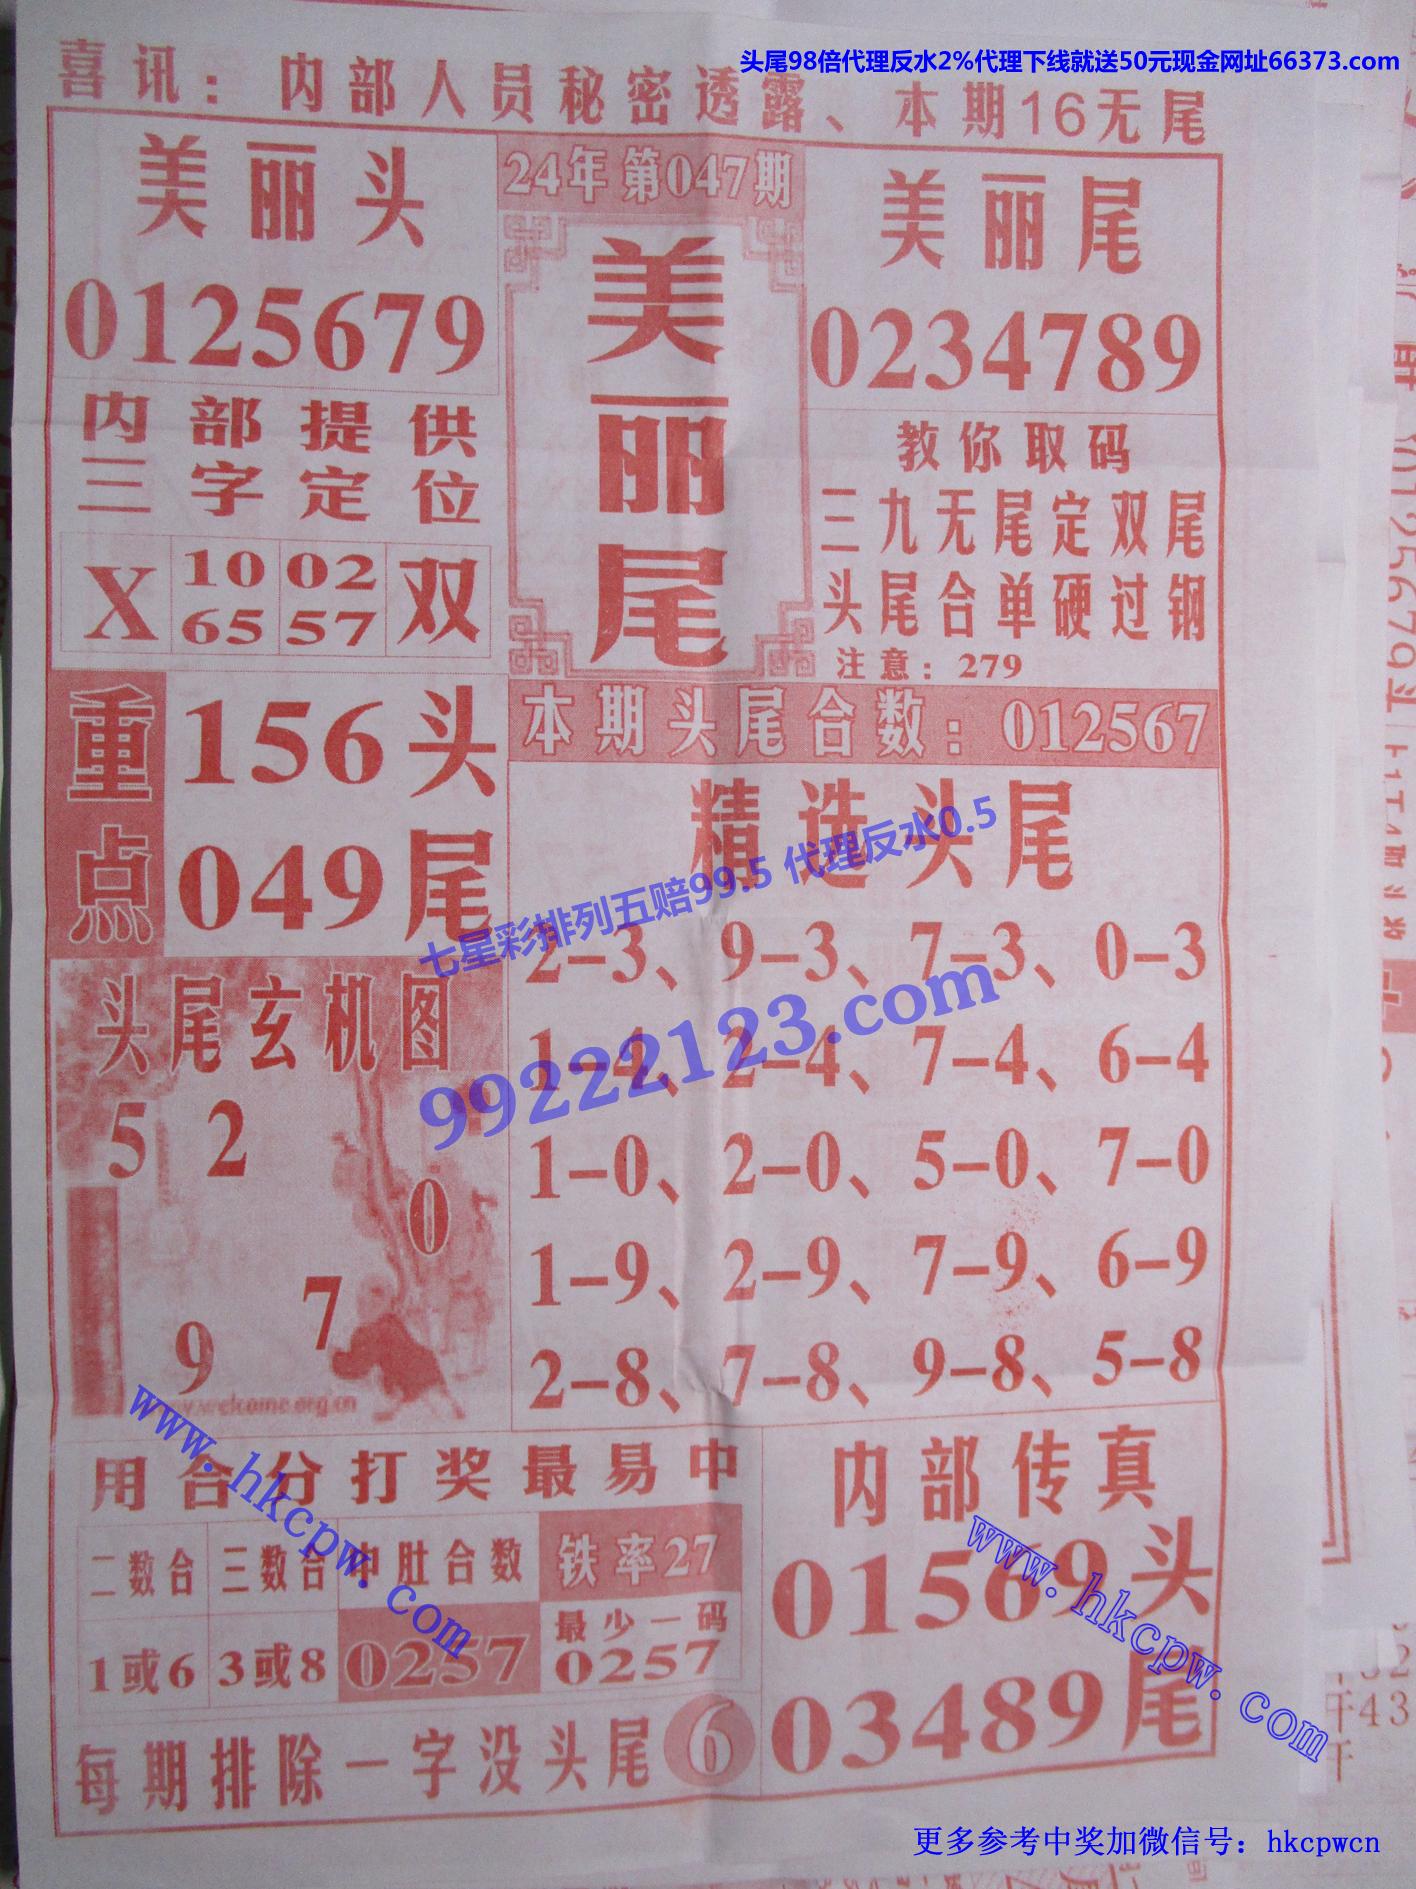 头尾98倍代理反水2%代理下线就送50元现金网址66373.com
喜讯：内部人员秘密透露、本期16无尾
美丽头
0125679
24年第047期
美丽尾
美丽尾
0234789
内部提供
三字定位
X 10 02 双
65 57
教你取码
三九无尾定双尾
头尾合单硬过钢
注意：279
重点
156头
049尾
本期头尾合数：012567
精选头尾
2-3、9-3、7-3、0-3
1-4、2-4、7-4、6-4
1-0、2-0、5-0、7-0
1-9、2-9、7-9、6-9
2-8、7-8、9-8、5-8
七星彩排列五赔99.5 代理反水0.5
99222123.com
头尾玄机图
5 2
0
7
9
www.hkcpw.com
用合分打奖最易中
二数合 三数合 中肚合数 铁率27
1或6 3或8 0257 最少一码
0257
每期排除一字没头尾 6
内部传真
01569头
03489尾
www.hkcpw.com
更多参考中奖加微信号：hkcpwcn